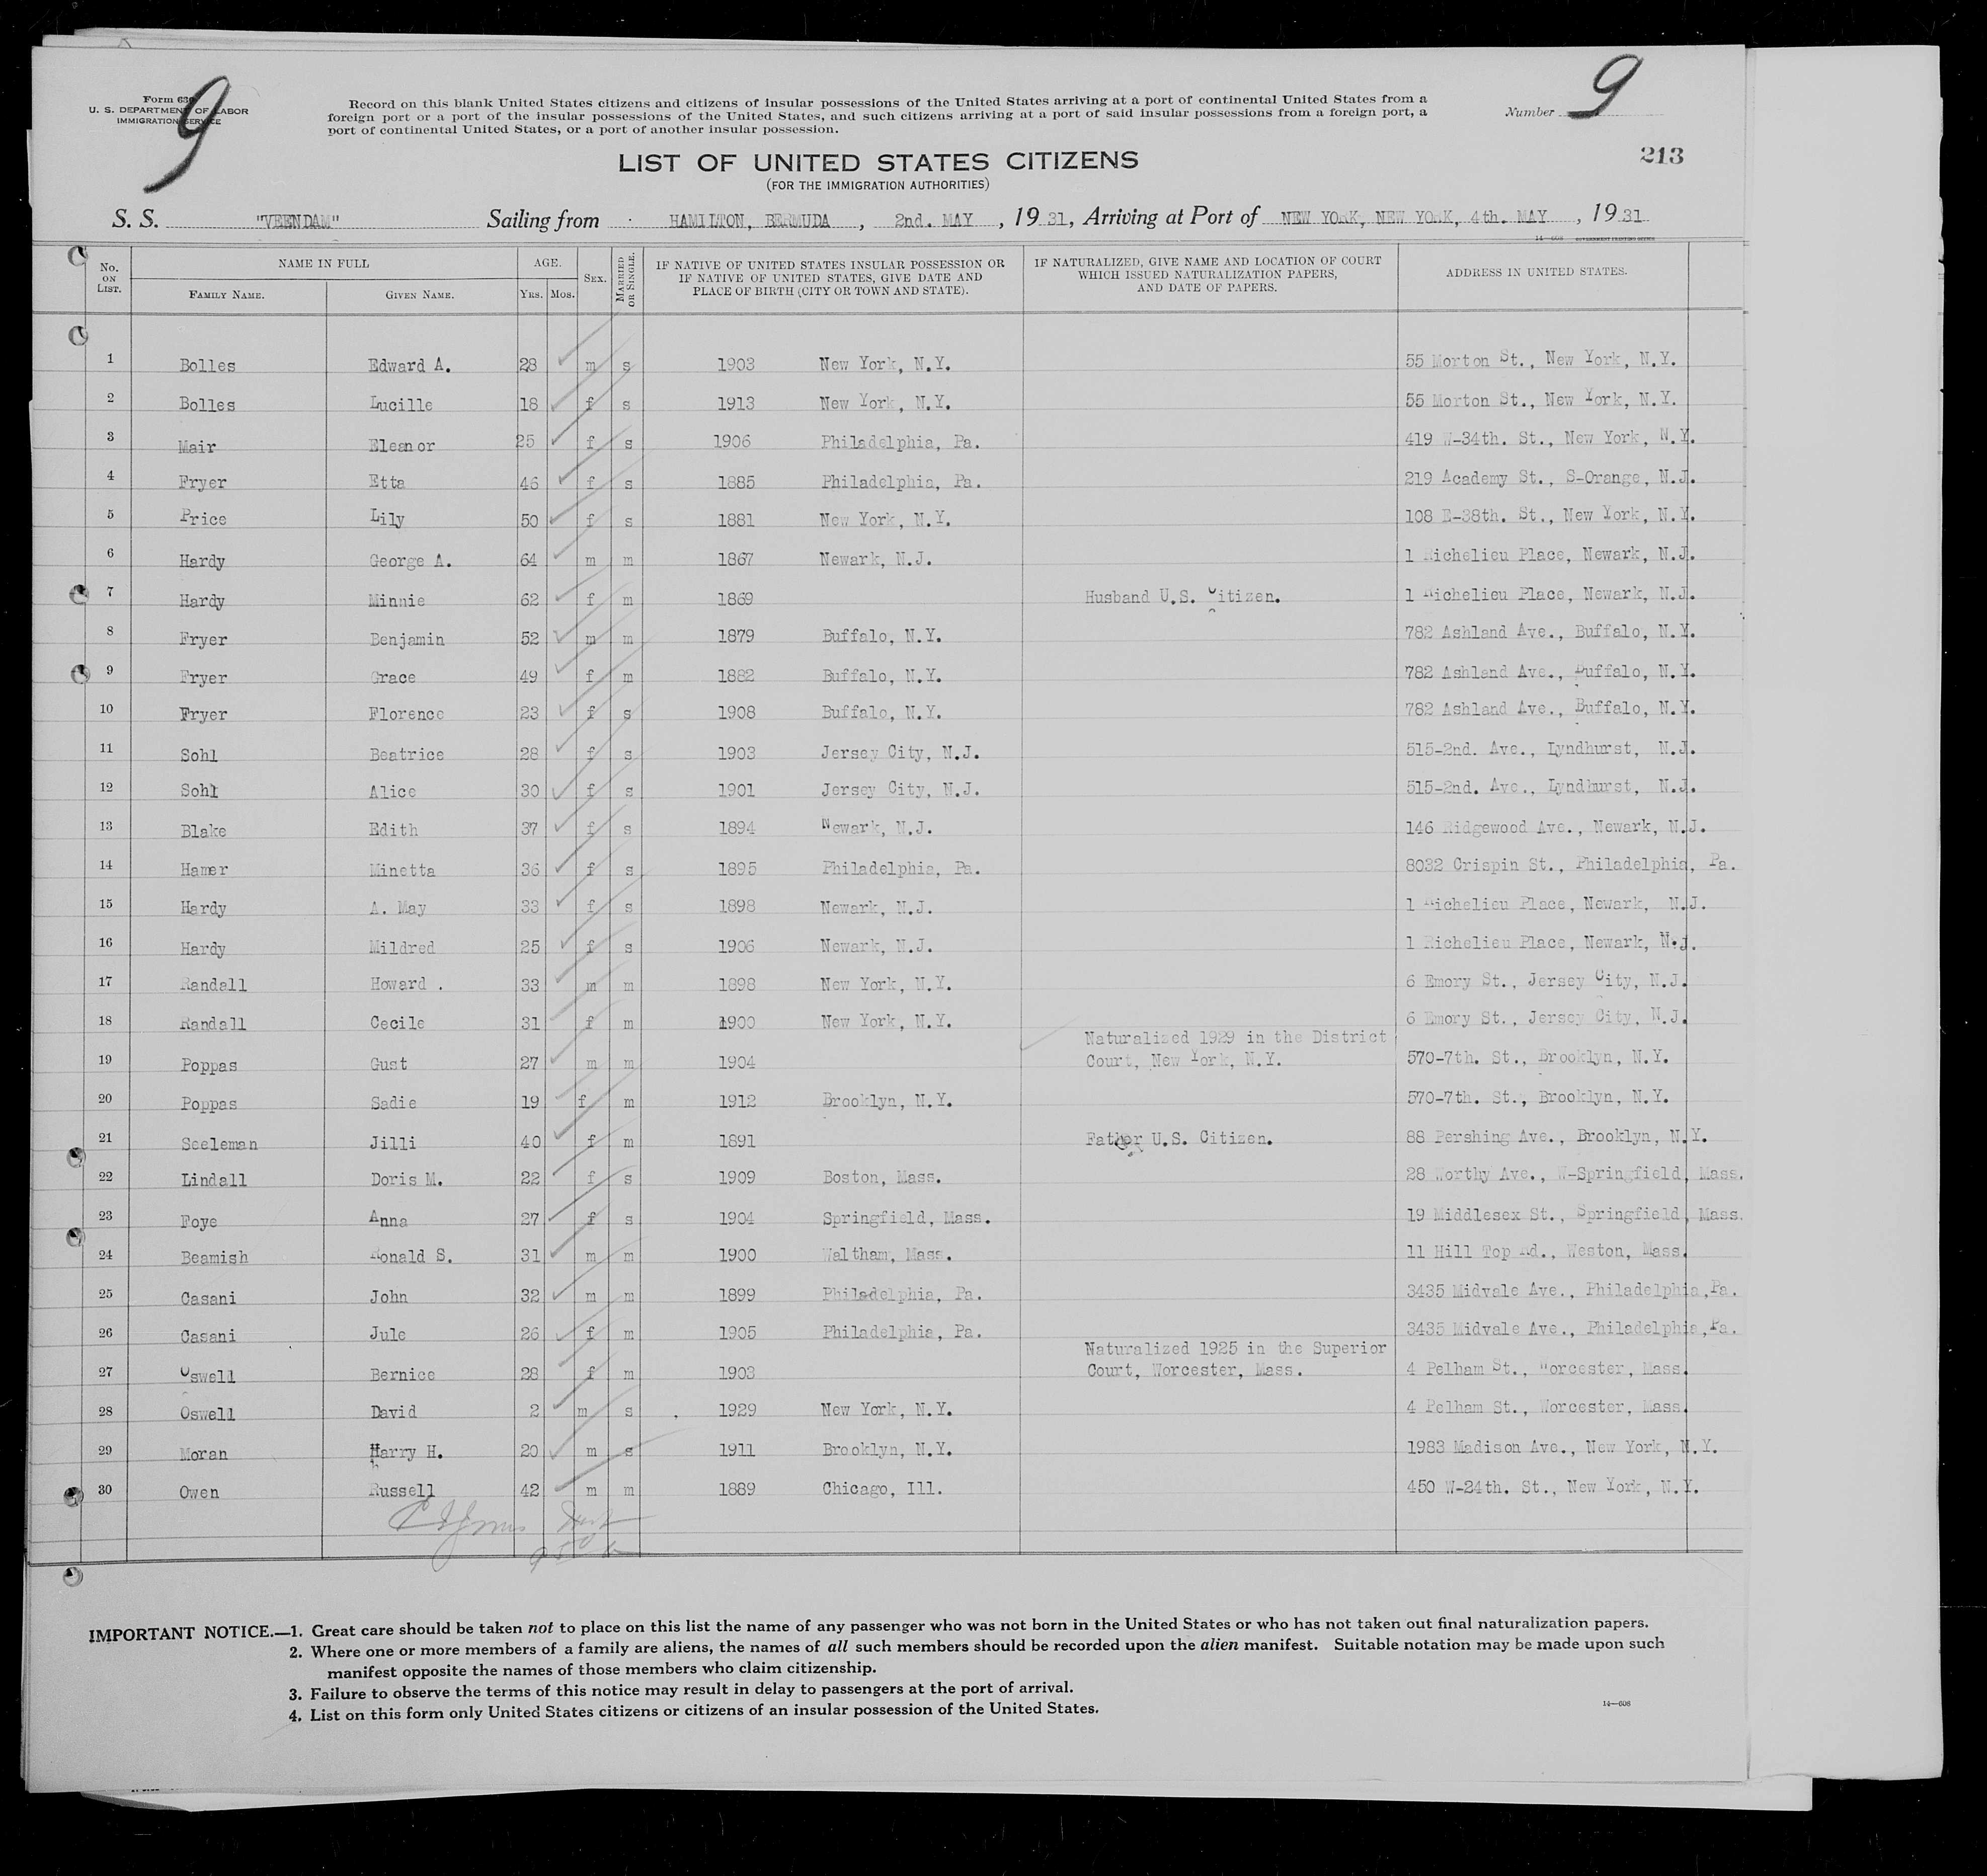 9
Form 630
U. S. DEPARTMENT OF LABOR
IMMIGRATION SERVICE
Record on this blank United States citizens and citizens of insular possessions of the United States arriving at a port of continental United States from a
foreign port or a port of the insular possessions of the United States, and such citizens arriving at a port of said insular possessions from a foreign port, a
port of continental United States, or a port of another insular possession.
Number 9
213
LIST OF UNITED STATES CITIZENS
(FOR THE IMMIGRATION AUTHORITIES)
S. S. "VEENDAM" Sailing from HAMILTON, BERMUDA, 2nd. MAY, 1931, Arriving at Port of NEW YORK, NEW YORK, 4th. MAY, 1931
14—608 GOVERNMENT PRINTING OFFICE
No. ON LIST. NAME IN FULL FAMILY NAME. GIVEN NAME. AGE. YRS. MOS. SEX. MARRIED OR SINGLE. IF NATIVE OF UNITED STATES INSULAR POSSESSION OR IF NATIVE OF UNITED STATES, GIVE DATE AND PLACE OF BIRTH (CITY OR TOWN AND STATE). IF NATURALIZED, GIVE NAME AND LOCATION OF COURT WHICH ISSUED NATURALIZATION PAPERS, AND DATE OF PAPERS. ADDRESS IN UNITED STATES.
1 Bolles Edward A. 28 m s 1903 New York, N.Y. 55 Morton St., New York, N.Y.
2 Bolles Lucille 18 f s 1913 New York, N.Y. 55 Morton St., New York, N.Y.
3 Mair Eleanor 25 f s 1906 Philadelphia, Pa. 419 W-34th. St., New York, N.Y.
4 Fryer Etta 46 f s 1885 Philadelphia, Pa. 219 Academy St., S-Orange, N.J.
5 Price Lily 50 f s 1881 New York, N.Y. 108 E-38th. St., New York, N.Y.
6 Hardy George A. 64 m m 1867 Newark, N.J. 1 Richelieu Place, Newark, N.J.
7 Hardy Minnie 62 f m 1869 Husband U.S. Citizen. 1 Richelieu Place, Newark, N.J.
8 Fryer Benjamin 52 m m 1879 Buffalo, N.Y. 782 Ashland Ave., Buffalo, N.Y.
9 Fryer Grace 49 f m 1882 Buffalo, N.Y. 782 Ashland Ave., Buffalo, N.Y.
10 Fryer Florence 23 f s 1908 Buffalo, N.Y. 782 Ashland Ave., Buffalo, N.Y.
11 Sohl Beatrice 28 f s 1903 Jersey City, N.J. 515-2nd. Ave., Lyndhurst, N.J.
12 Sohl Alice 30 f s 1901 Jersey City, N.J. 515-2nd. Ave., Lyndhurst, N.J.
13 Blake Edith 37 f s 1894 Newark, N.J. 146 Ridgewood Ave., Newark, N.J.
14 Hamer Minetta 36 f s 1895 Philadelphia, Pa. 8032 Crispin St., Philadelphia, Pa.
15 Hardy A. May 33 f s 1898 Newark, N.J. 1 Richelieu Place, Newark, N.J.
16 Hardy Mildred 25 f s 1906 Newark, N.J. 1 Richelieu Place, Newark, N.J.
17 Randall Howard . 33 m m 1898 New York, N.Y. 6 Emory St., Jersey City, N.J.
18 Randall Cecile 31 f m 1900 New York, N.Y. 6 Emory St., Jersey City, N.J.
Naturalized 1929 in the District
19 Poppas Gust 27 m m 1904 Court, New York, N.Y. 570-7th. St., Brooklyn, N.Y.
20 Poppas Sadie 19 f m 1912 Brooklyn, N.Y. 570-7th. St., Brooklyn, N.Y.
21 Seeleman Jilli 40 f m 1891 Father U.S. Citizen. 88 Pershing Ave., Brooklyn, N.Y.
22 Lindall Doris M. 22 f s 1909 Boston, Mass. 28 Worthy Ave., W-Springfield, Mass.
23 Foye Anna 27 f s 1904 Springfield, Mass. 19 Middlesex St., Springfield, Mass.
24 Beamish Ronald S. 31 m m 1900 Waltham, Mass. 11 Hill Top Rd., Weston, Mass.
25 Casani John 32 m m 1899 Philadelphia, Pa. 3435 Midvale Ave., Philadelphia, Pa.
26 Casani Jule 26 f m 1905 Philadelphia, Pa. 3435 Midvale Ave., Philadelphia, Pa.
Naturalized 1925 in the Superior
27 Oswell Bernice 28 f m 1903 Court, Worcester, Mass. 4 Pelham St., Worcester, Mass.
28 Oswell David 2 m s 1929 New York, N.Y. 4 Pelham St., Worcester, Mass.
29 Moran Harry H. 20 m s 1911 Brooklyn, N.Y. 1983 Madison Ave., New York, N.Y.
30 Owen Russell 42 m m 1889 Chicago, Ill. 450 W-24th. St., New York, N.Y.
IMPORTANT NOTICE.—1. Great care should be taken not to place on this list the name of any passenger who was not born in the United States or who has not taken out final naturalization papers.
2. Where one or more members of a family are aliens, the names of all such members should be recorded upon the alien manifest. Suitable notation may be made upon such
manifest opposite the names of those members who claim citizenship.
3. Failure to observe the terms of this notice may result in delay to passengers at the port of arrival.
4. List on this form only United States citizens or citizens of an insular possession of the United States.
14—608